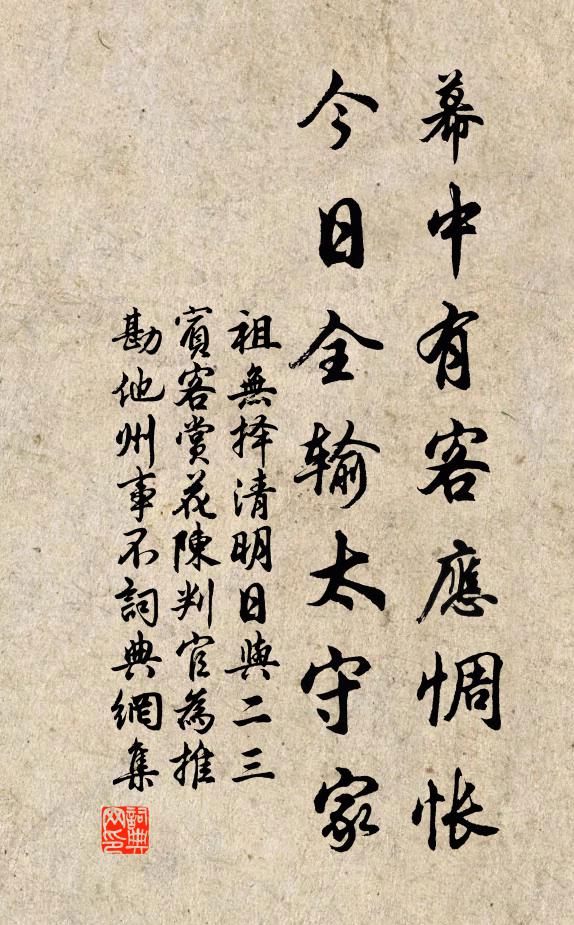 幕中有客應惆怅
今日全输太守家
祖無择清明日與二三
賓客賞花陳判官為推
勘他州事不詞典網集
詞典网印